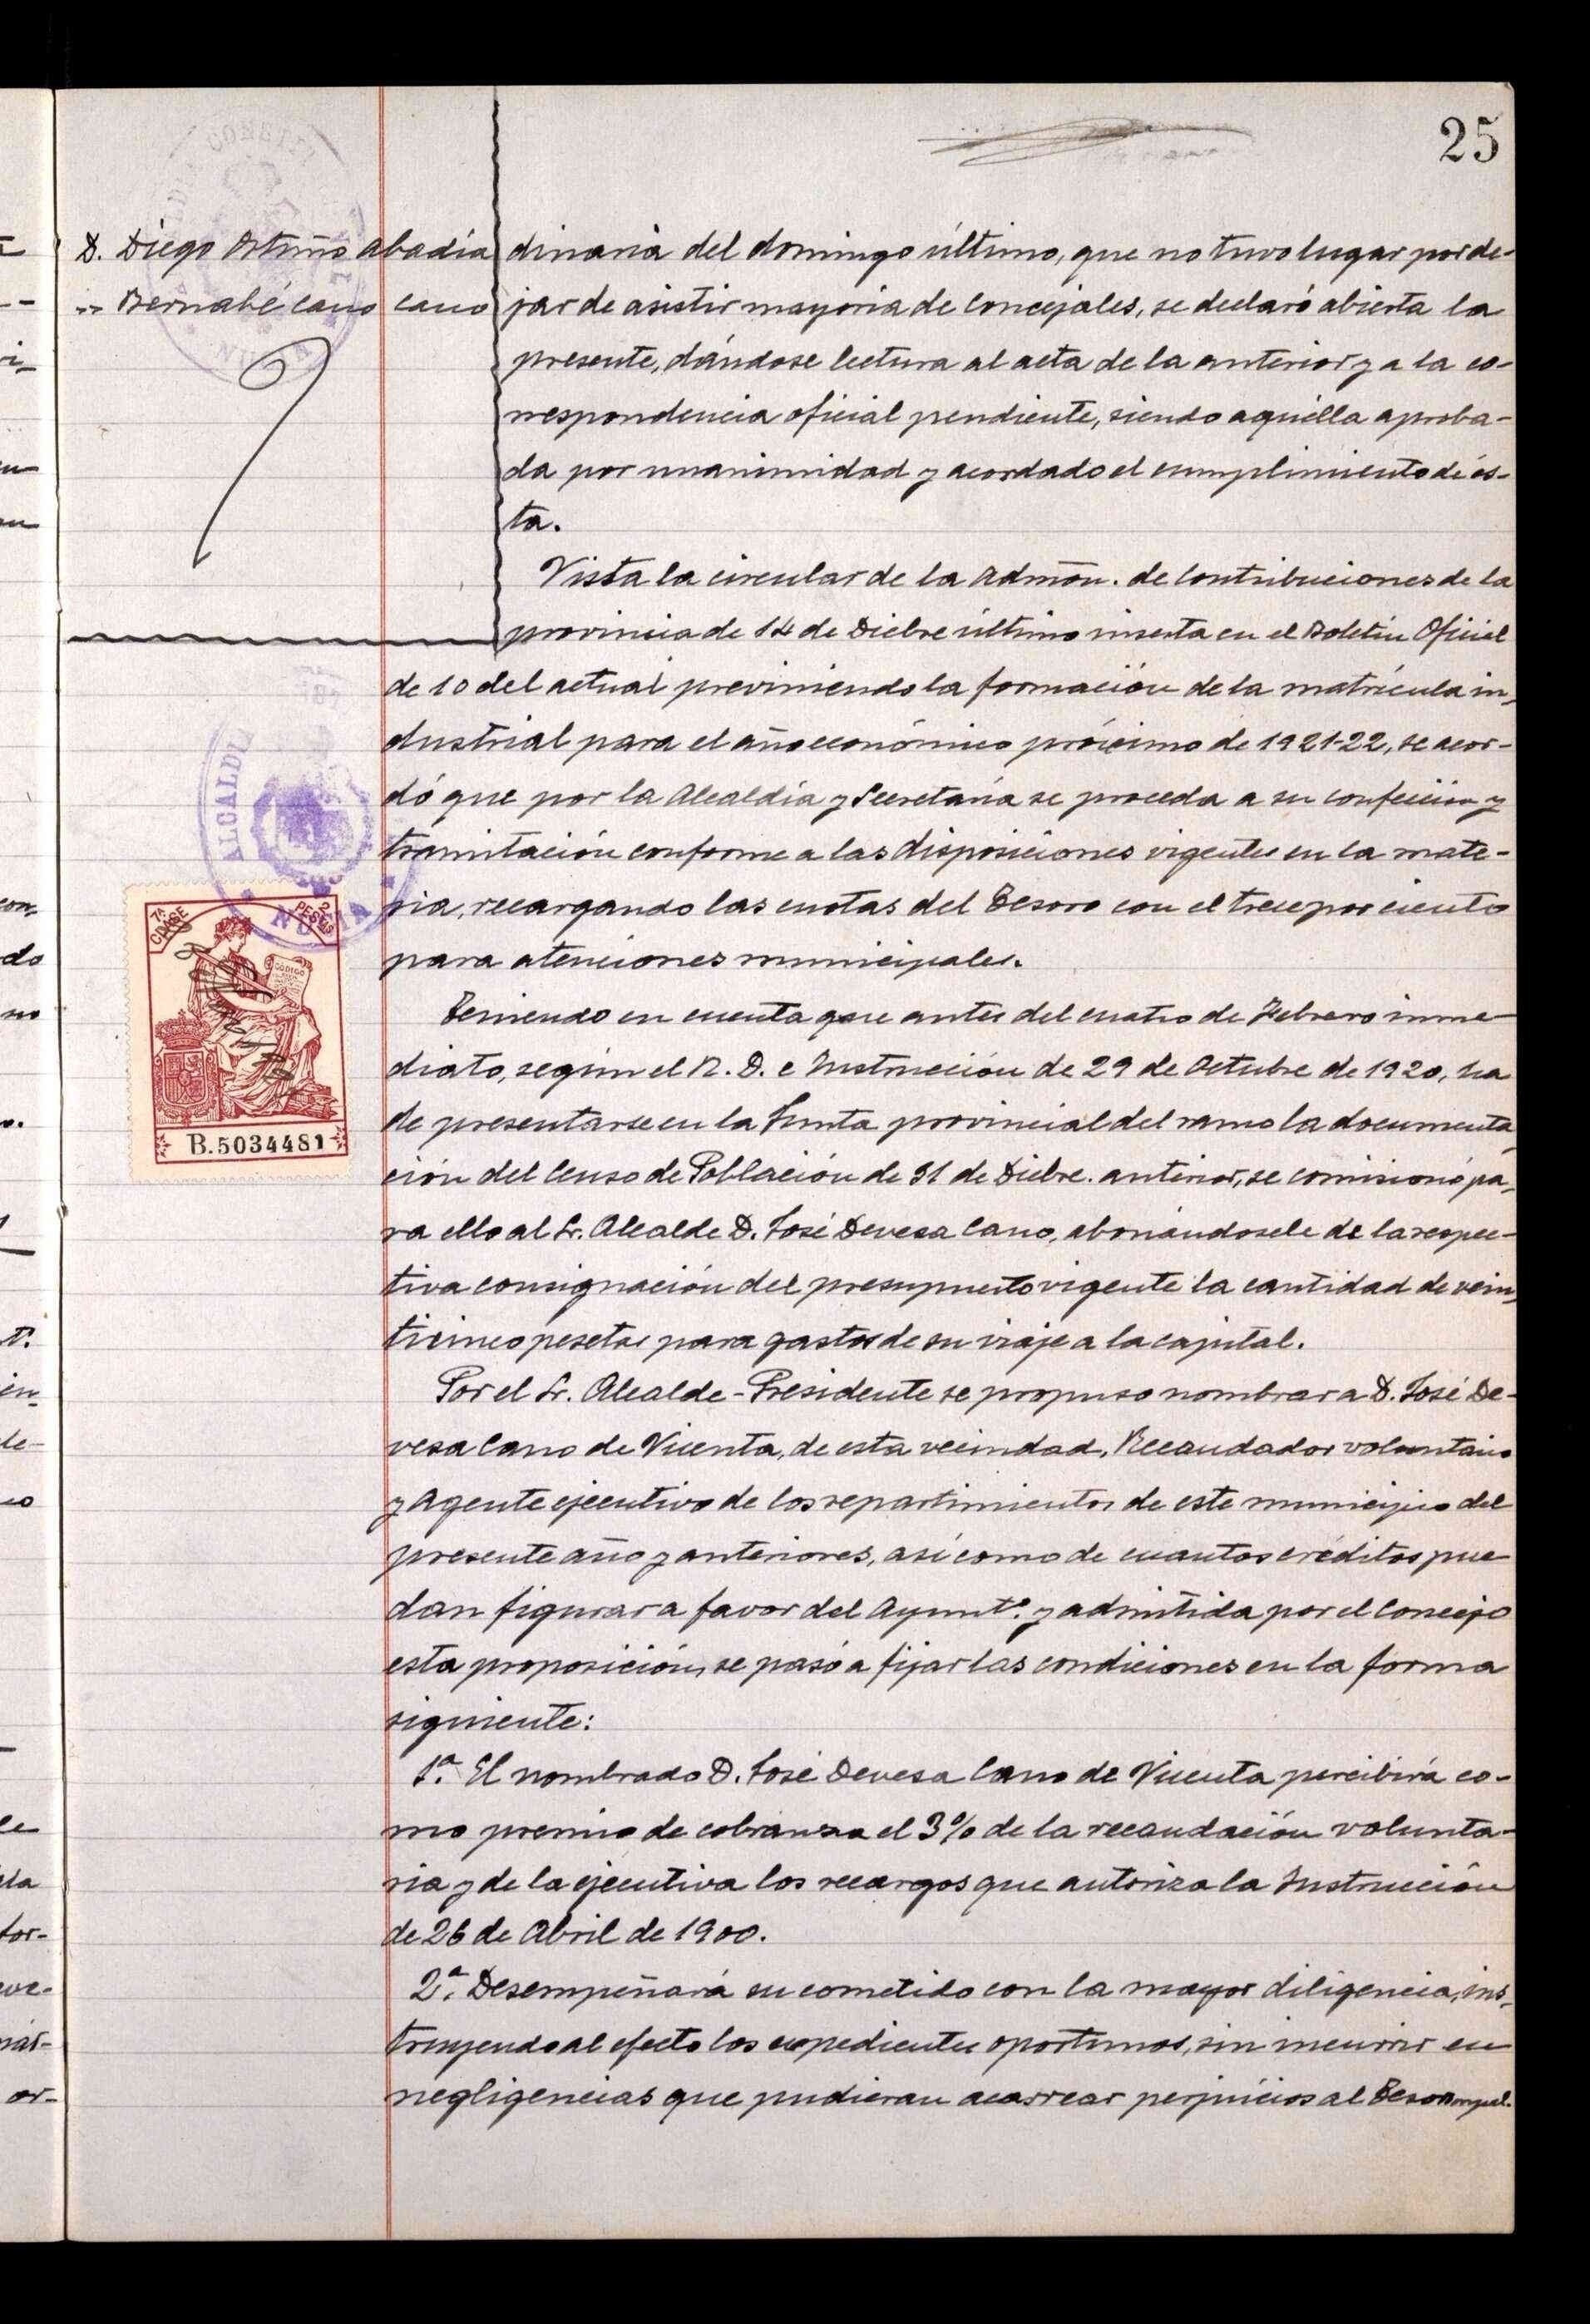 25
D. Diego Ortuño Abadía
" Bernabé Cano Cano
dinaria del domingo último, que no tuvo lugar por de-
jar de asistir mayoria de Concejales, se declaró abierta la
presente, dándose lectura al acta de la anterior y a la co-
rrespondencia oficial pendiente, siendo aquélla aproba-
da por unanimidad y acordado el cumplimiento de és-
ta.
Vista la circular de la Admón. de Contribuciones de la
provincia de 14 de Dicbre último inserta en el Boletín Oficial
de 10 del actual previniendo la formación de la matrícula in-
dustrial para el año económico próximo de 1921-22, se acor-
dó que por la Alcaldía y Secretaría se proceda a su confección y
tramitación conforme a las disposiciones vigentes en la mate-
ria, recargando las cuotas del Tesoro con el trece por ciento
para atenciones municipales.
Teniendo en cuenta que antes del cuatro de Febrero inme-
diato, según el R. D. e Instrucción de 29 de Octubre de 1920, ha
de presentarse en la Junta provincial del ramo la documenta-
ción del Censo de Población de 31 de Dicbre. anterior, se comisionó pa-
ra ello al Sr. Alcalde D. José Devesa Cano, abonándosele de la respec-
tiva consignación del presupuesto vigente la cantidad de vein-
ticinco pesetas para gastos de su viaje a la capital.
Por el Sr. Alcalde-Presidente se propuso nombrar a D. José De-
vesa Cano de Vicenta, de esta vecindad, Recaudador voluntario
y Agente ejecutivo de los repartimientos de este municipio del
presente año y anteriores, así como de cuantos créditos pue-
dan figurar a favor del Ayuntº. y admitida por el Concejo
esta proposición, se pasó a fijar las condiciones en la forma
siguiente:
1ª. El nombrado D. José Devesa Cano de Vicenta percibirá co-
mo premio de cobranza el 3% de la recaudación volunta-
ria y de la ejecutiva los recargos que autoriza la Instrucción
de 26 de Abril de 1900.
2ª. Desempeñará su cometido con la mayor diligencia, ins-
truyendo al efecto los expedientes oportunos, sin incurrir en
negligencias que pudieran acarrear perjuicios al Tesoro mpal.
ALCALDI
NUCIA
7ª CLASE
2 PESETAS
CODIGO
B.5034481